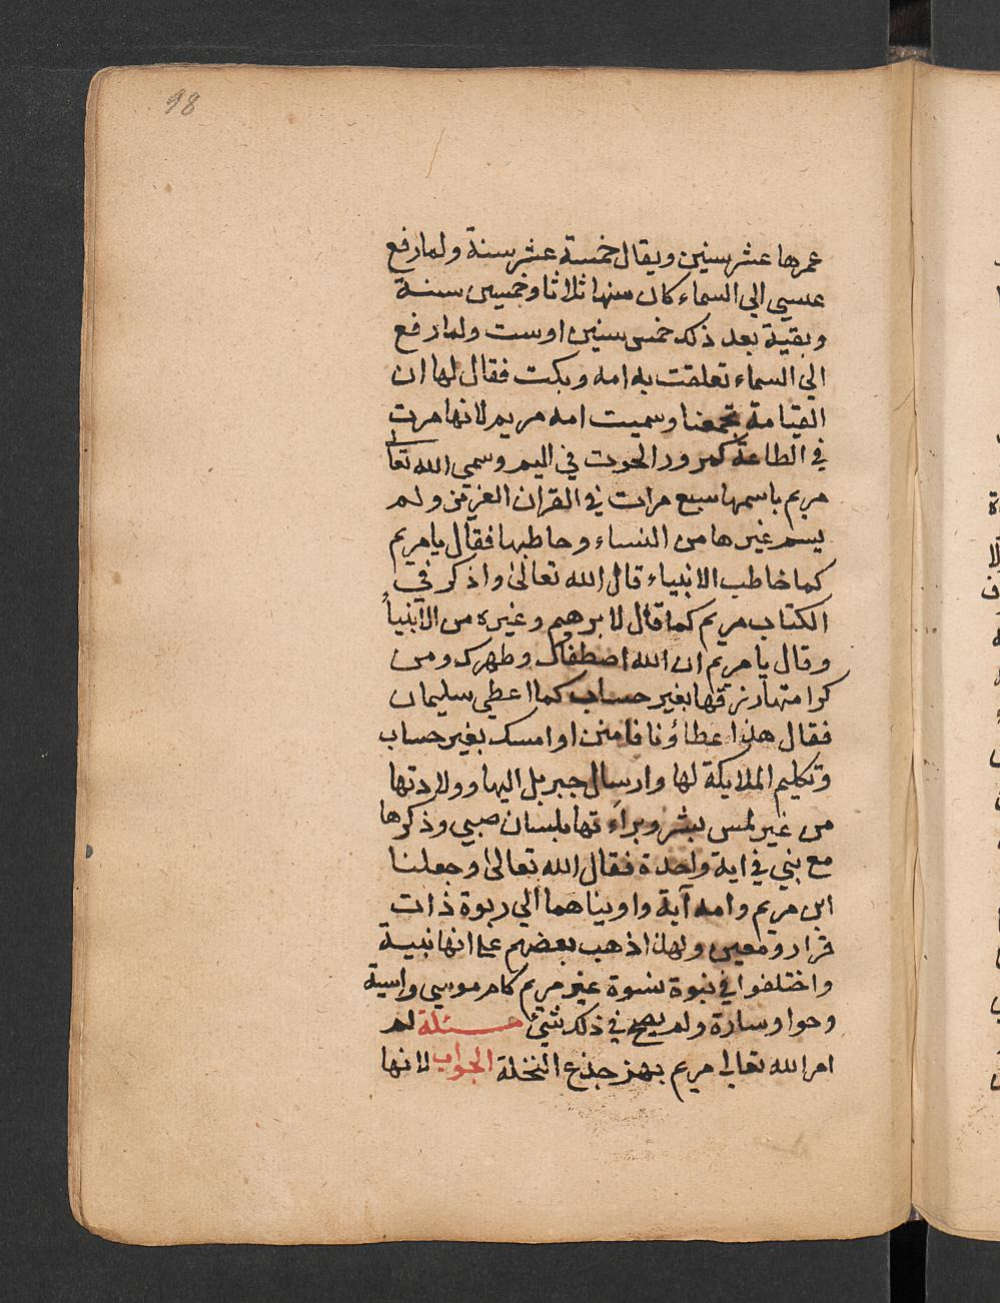 98
عمرها عشر سنين ويقال خمسة عشر سنة ولما رفع
عيسي الي السماء كان سنها ثلاثا وخمسين سنة
وبقية بعد ذلك خمس سنين او ست ولما رفع
الي السماء تعلقت به امه وبكت فقال لها ان
القيامة تجمعنا وسميت امه مريم لانها مرت
في الطاعة كمرور الحوت في اليم وسمي الله تعالى
مريم باسمها سبع مرات في القران العزيز ولم
يسم غيرها من النساء وخاطبها فقال يا مريم
كما خاطب الانبياء قال الله تعالى واذكر في
الكتاب مريم كما قال لابرهيم وغيره من الانبياء
وقال يا مريم ان الله اصطفاك وطهرك ومن
كرامتها رزقها بغير حساب كما اعطي سليمان
فقال هذا عطاؤنا فامنن او امسك بغير حساب
وتكليم الملايكة لها وارسال جبريل اليها وولادتها
من غير لمس بشر وبراءتها بلسان صبي وذكرها
مع بني في اية واحدة فقال الله تعالى وجعلنا
ابن مريم وامه آية واويناهما الي ربوة ذات
قرار ومعين ولهذا ذهب بعضهم على انها نبية
واختلفوا في نبوة نسوة غير مريم كام موسي واسية
وحوا وسارة ولم يصح في ذلك شيئ مسئلة لم
امر الله تعالى مريم بهز جذع النخلة الجواب لانها